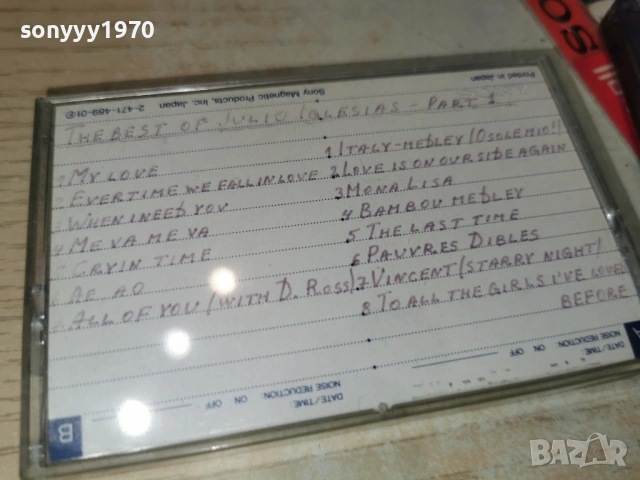 sonyyy1970
Printed in Japan
Sony Magnetic Products, Inc. Japan 2-471-489-01
THE BEST OF JULIO IGLESIAS - PART 1
1 MY LOVE
2 EVERTIME WE FALL IN LOVE
3 WHEN I NEED YOU
4 ME VA ME VA
5 CRYIN TIME
6 AE AO
ALL OF YOU (WITH D. ROSS)
1 ITALY-MEDLEY (O SOLE MIO!)
2 LOVE IS ON OUR SIDE AGAIN
3 MONA LISA
4 BAMBOU MEDLEY
5 THE LAST TIME
6 PAUVRES DIBLES
7 VINCENT (STARRY NIGHT)
8 TO ALL THE GIRLS I'VE LOVED
BEFORE
DATE/TIME:
NOISE REDUCTION ON OFF
A
DATE/TIME:
NOISE REDUCTION ON OFF
B
SO
BAZAR